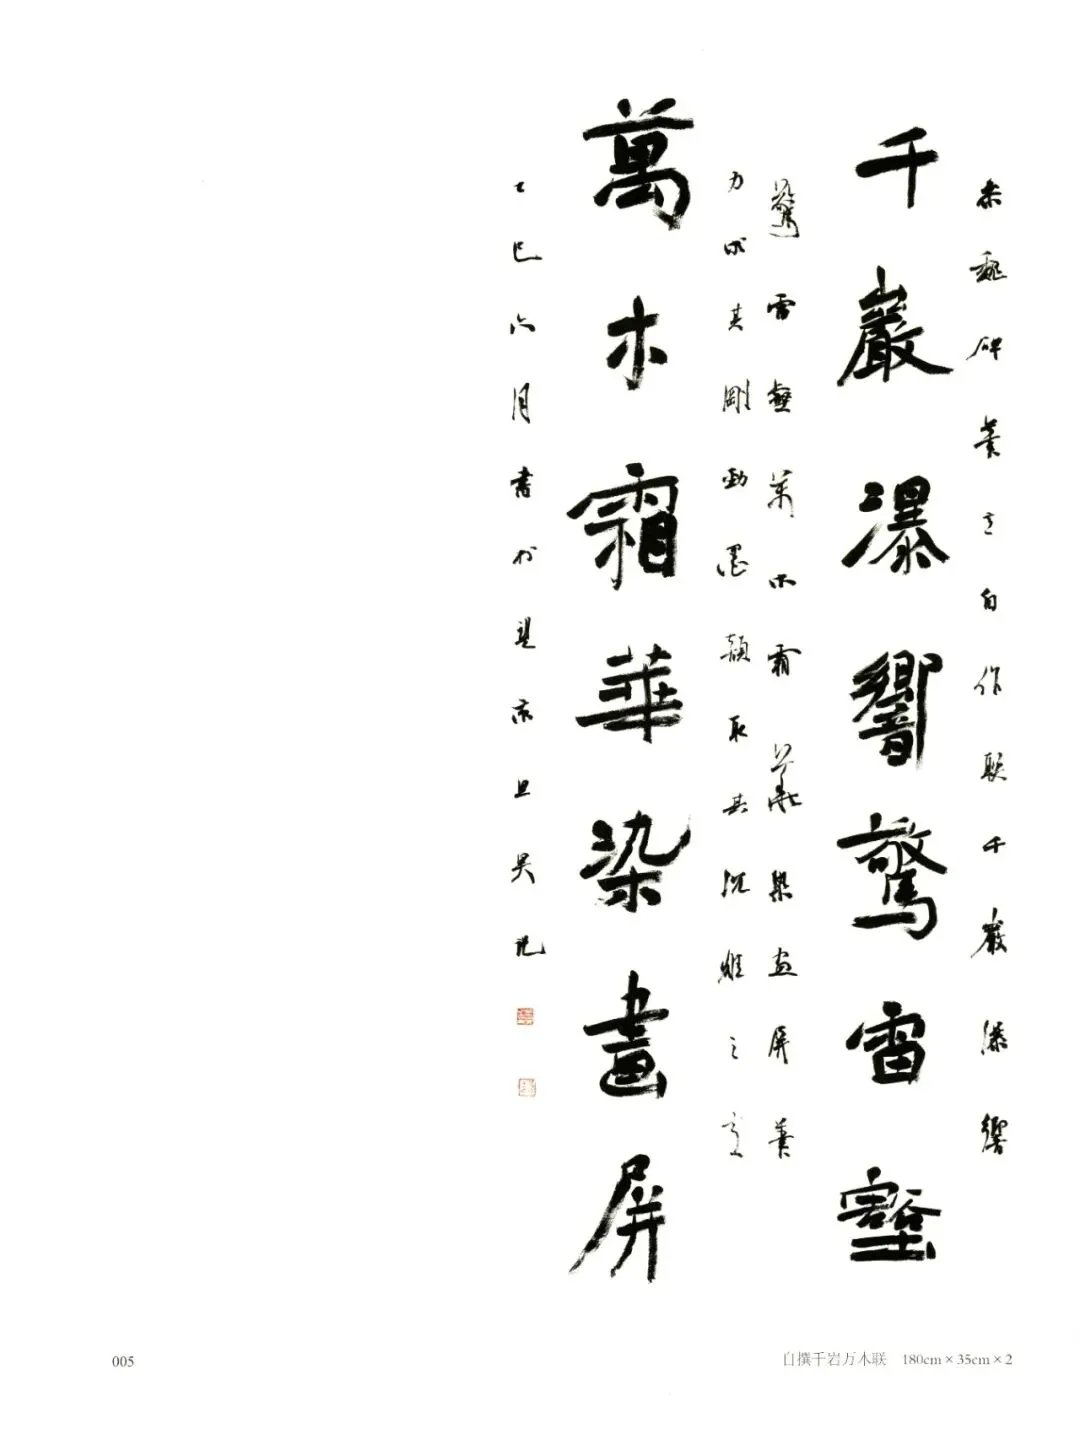 千巖瀑響驚雷壑
萬木霜華染畫屏
魏碑筆意自作联千巖瀑響
驚雷壑萬木霜華染畫屏筆
力求其剛勁墨韻取其沉雄之意
乙巳六月書於京旦吴
005
自撰千岩万木联 180cm×35cm×2